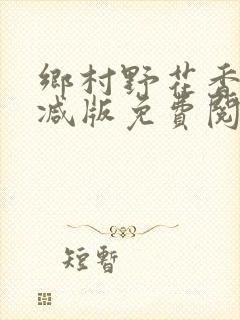 鄉村野花香
减版免費閱
短暫